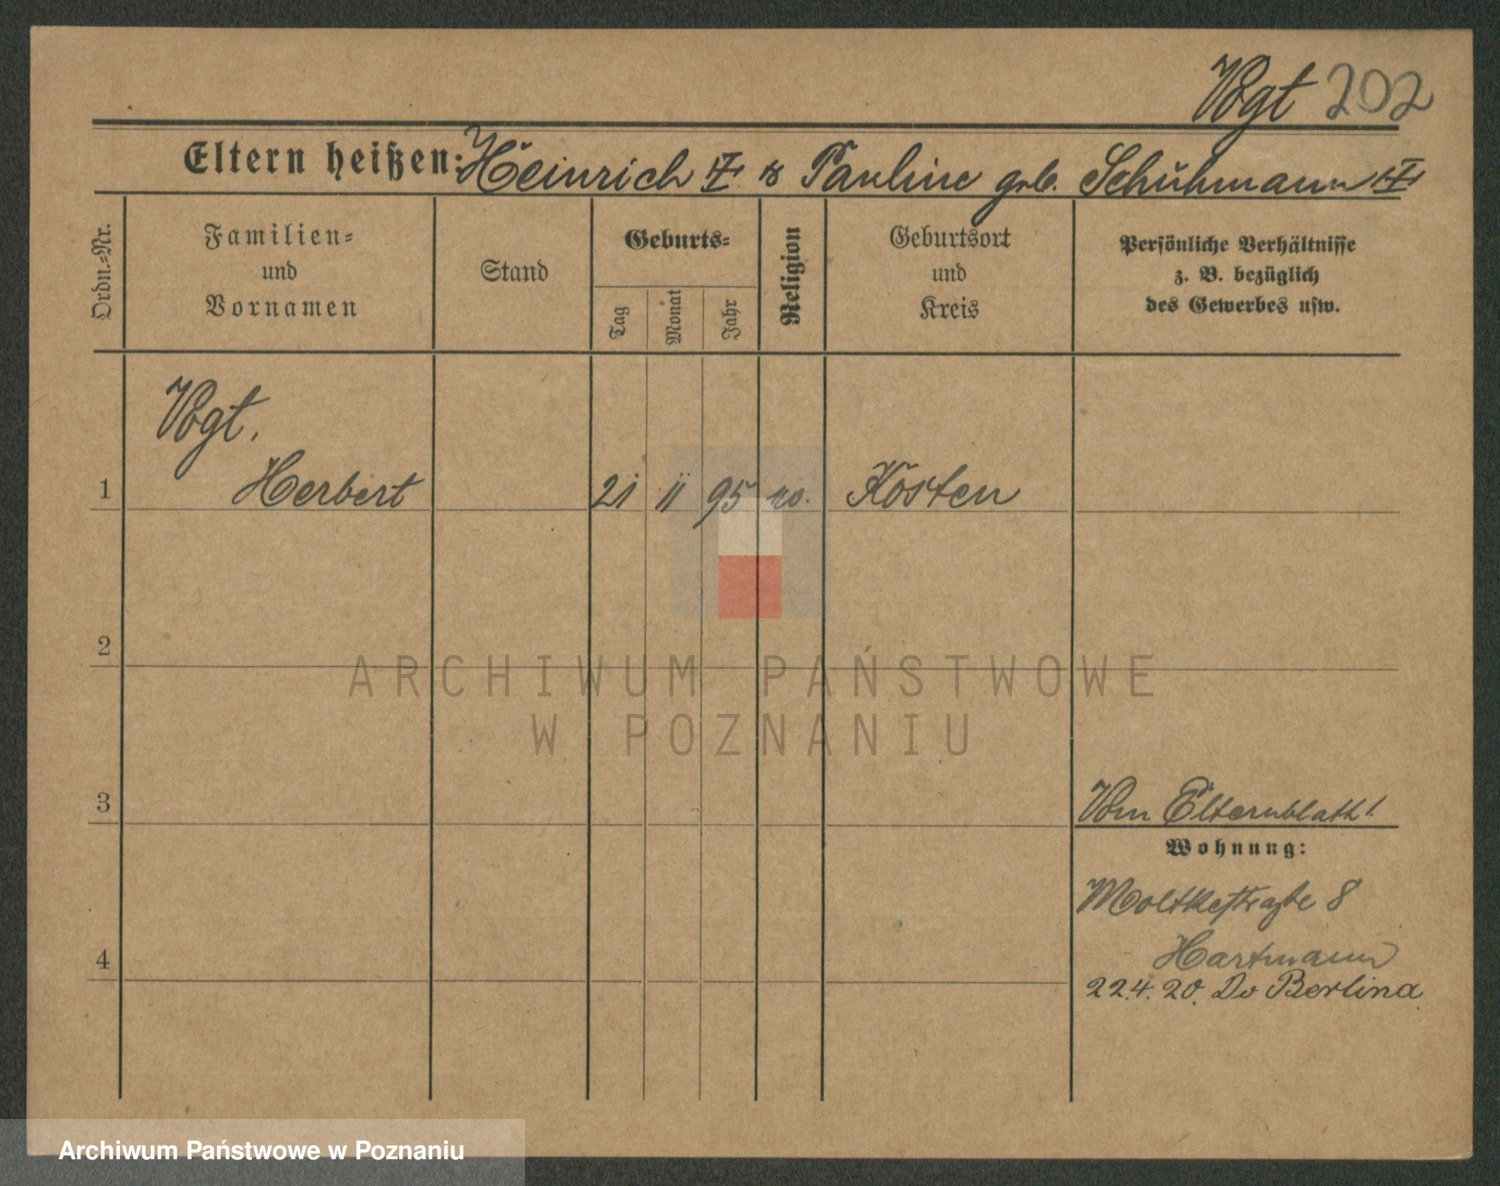 Vogt 202
Eltern heißen: Heinrich & Pauline geb. Schuhmann
Ordn.-Nr.
Familien-
und
Vornamen
Stand
Geburts-
Tag
Monat
Jahr
Religion
Geburtsort
und
Kreis
Persönliche Verhältnisse
z. B. bezüglich
des Gewerbes usw.
Vogt,
1 Herbert 21 11 95 Kosten
2
ARCHIWUM PAŃSTWOWE
W POZNANIU
3
Vom Elternblatt!
Wohnung:
Moltkestraße 8
Hartmann
4
22.4.20. Do Berlina
Archiwum Państwowe w Poznaniu